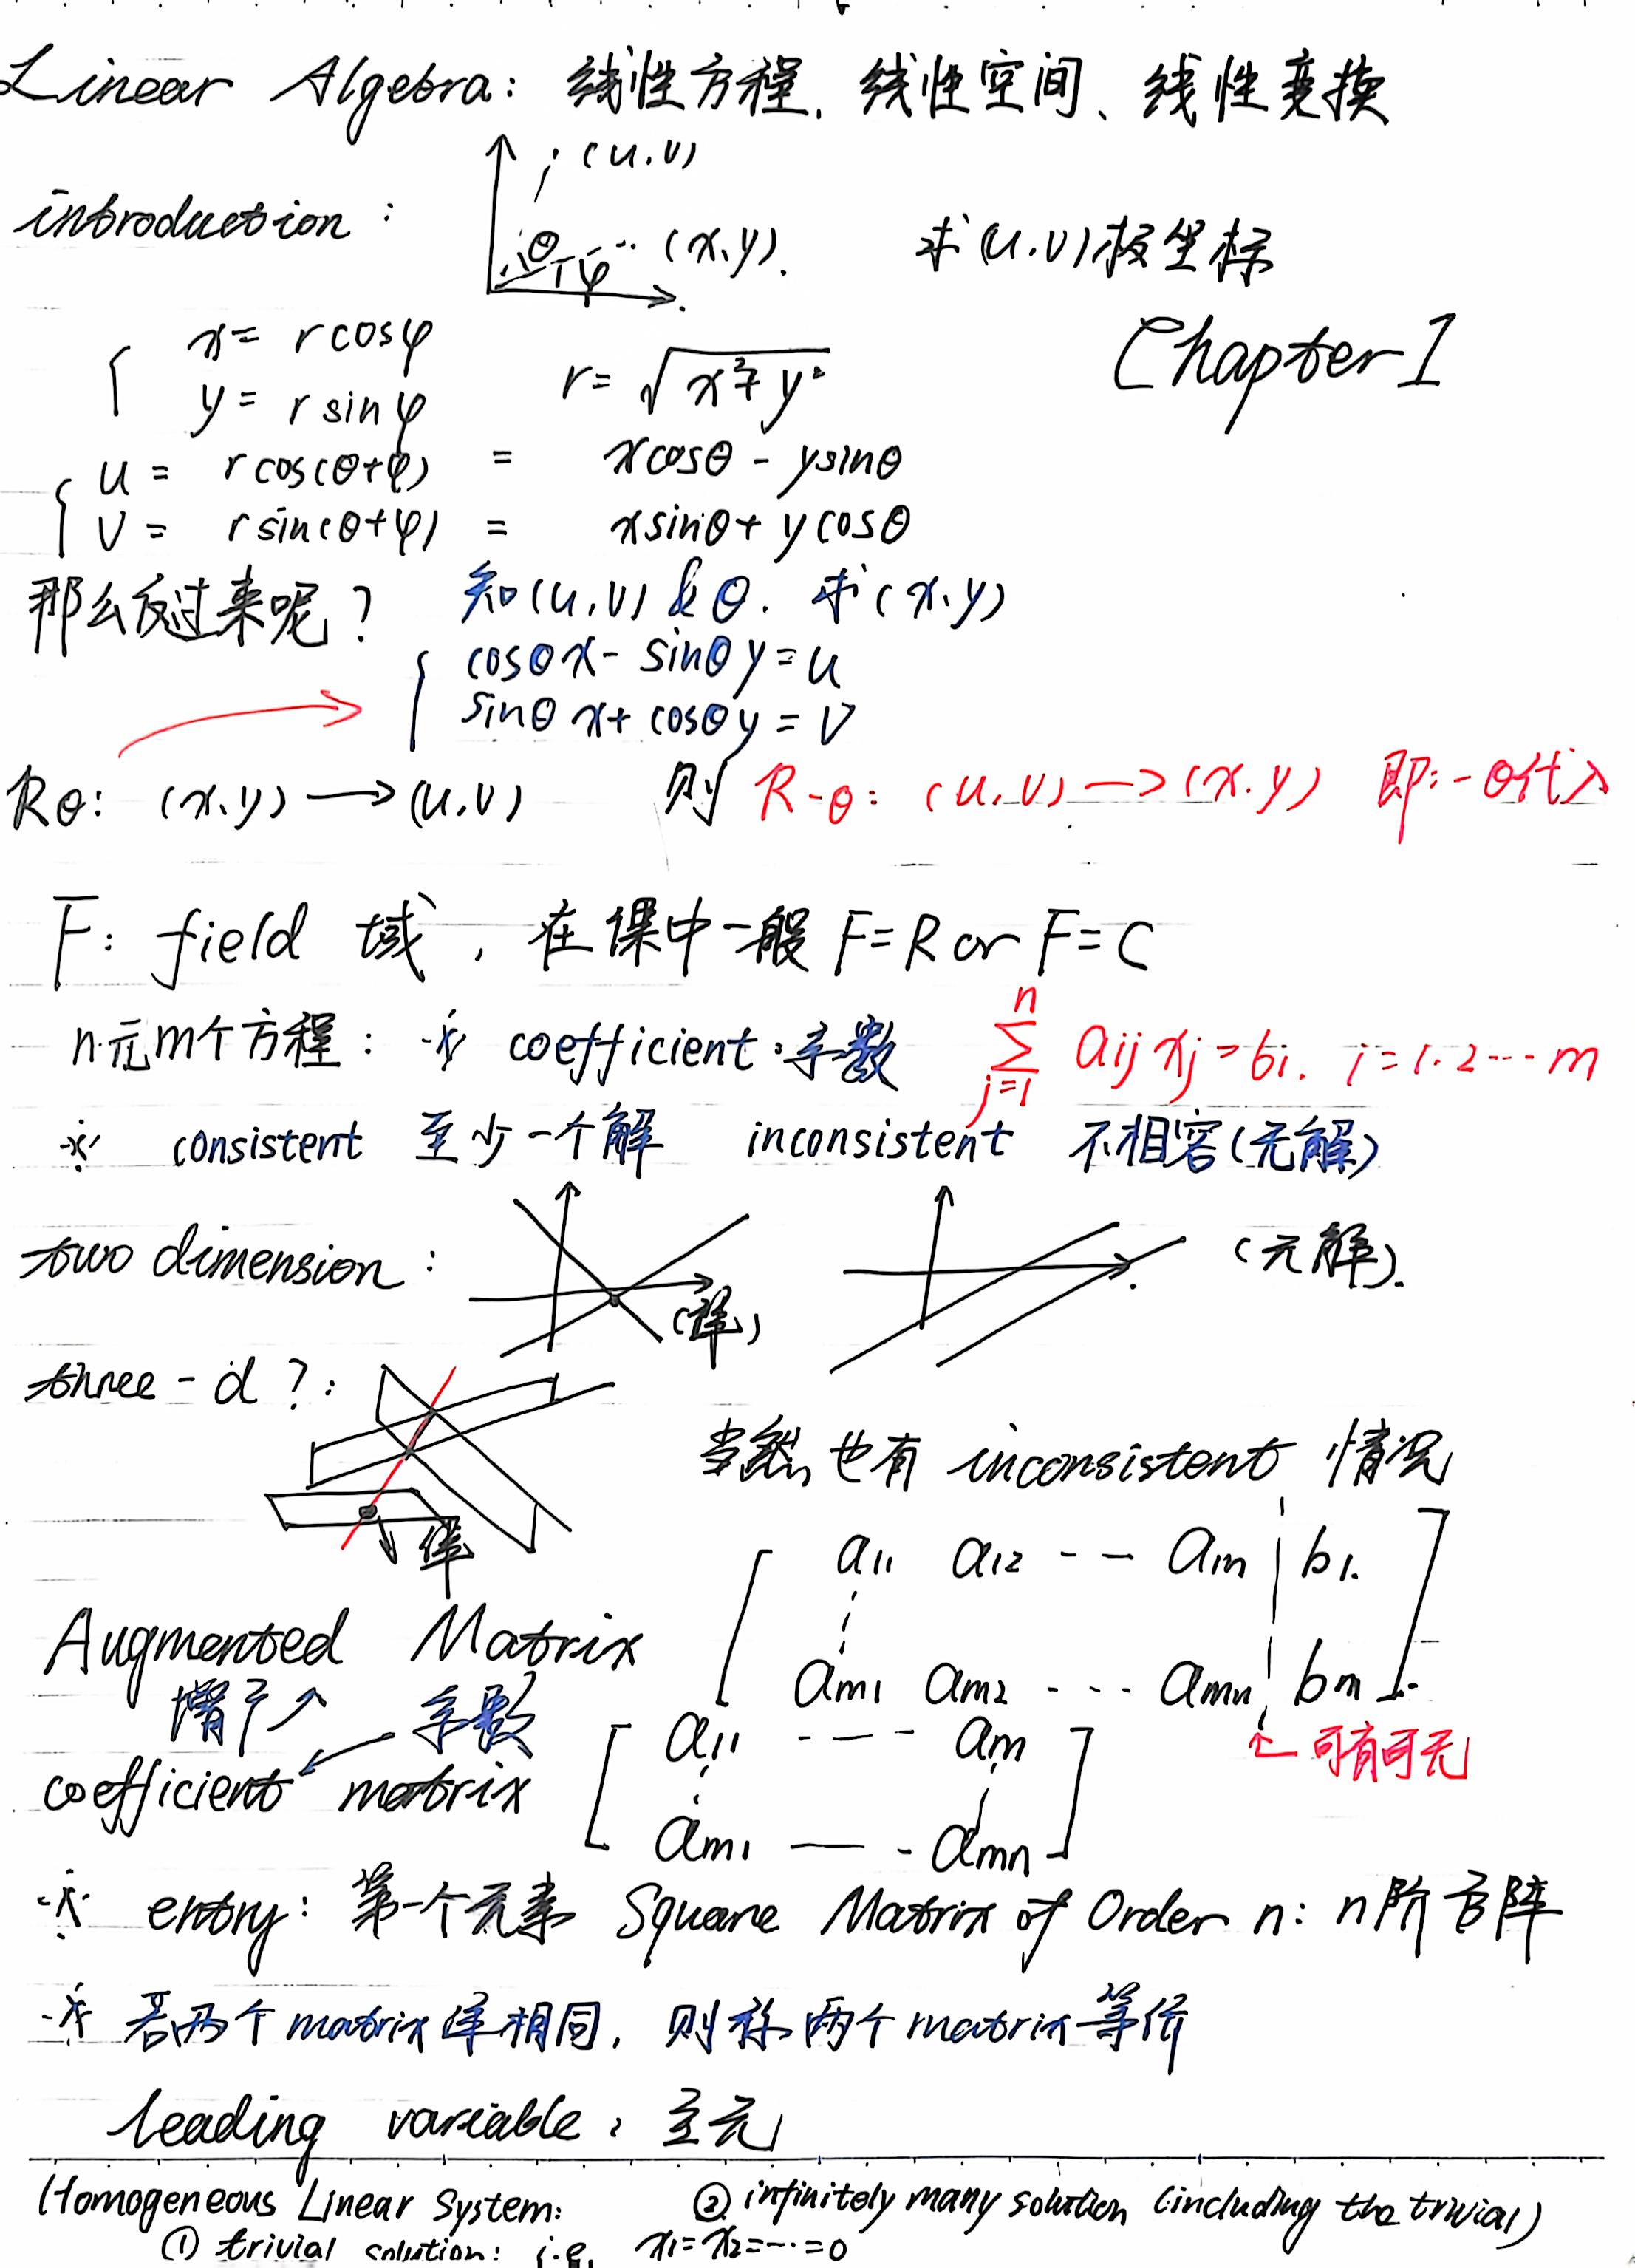 Linear Algebra: 线性方程、线性空间、线性变换
(u,v)
introduction: θ φ (x,y). 求(u,v)极坐标
x = rcosφ
Chapter 1
y = rsinφ r = √x²+y²
u = rcos(θ+φ) = xcosθ - ysinθ
v = rsin(θ+φ) = xsinθ + ycosθ
那么反过来呢? 知(u,v) & θ. 求(x,y)
cosθx - sinθy = u
sinθx + cosθy = v
Rθ: (x,y) → (u,v) 则 R-θ: (u,v) → (x,y) 即:-θ代入
F: field 域, 在课中一般 F=R or F=C
n元m个方程: ※ coefficient:系数 n∑j=1 aij xj = bi. i=1.2···m
※ consistent 至少一个解 inconsistent 不相容(无解)
two dimension: (解) (无解).
three-d?:
当然也有 inconsistent 情况
解
a11 a12 --- a1n | b1.
Augmented Matrix
am1 am2 ···· amn | bm
增广 系数
a11 ---- a1n ← 可有可无
coefficient matrix
am1 —-- amn
※ entry: 第一个元素 Square Matrix of Order n: n阶方阵
※ 若两个matrix解相同, 则称两个matrix等价
leading variable: 主元
Homogeneous Linear System: ② infinitely many solution (including the trivial)
① trivial solution: i.e. x1=x2=···=0